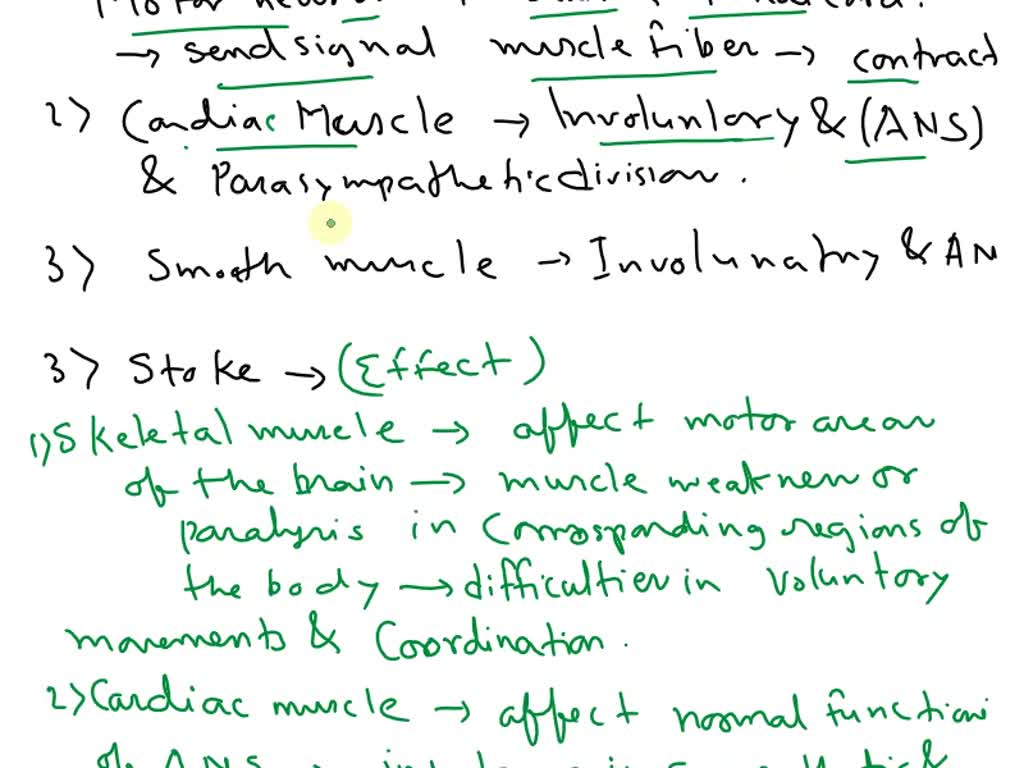 Motor
→ send signal muscle fiber → contract
2) Cardiac Muscle → Involuntary & (ANS)
& Parasympathetic division.
3) Smooth muscle → Involunatry & AN
3) Stoke → (Effect)
1) Skeletal muscle → affect motor area
of the brain → muscle weakness or
paralysis in Corrosponding regions of
the body → difficulties in voluntory
movements & Coordination.
2) Cardiac muscle → affect normal function
of ANS